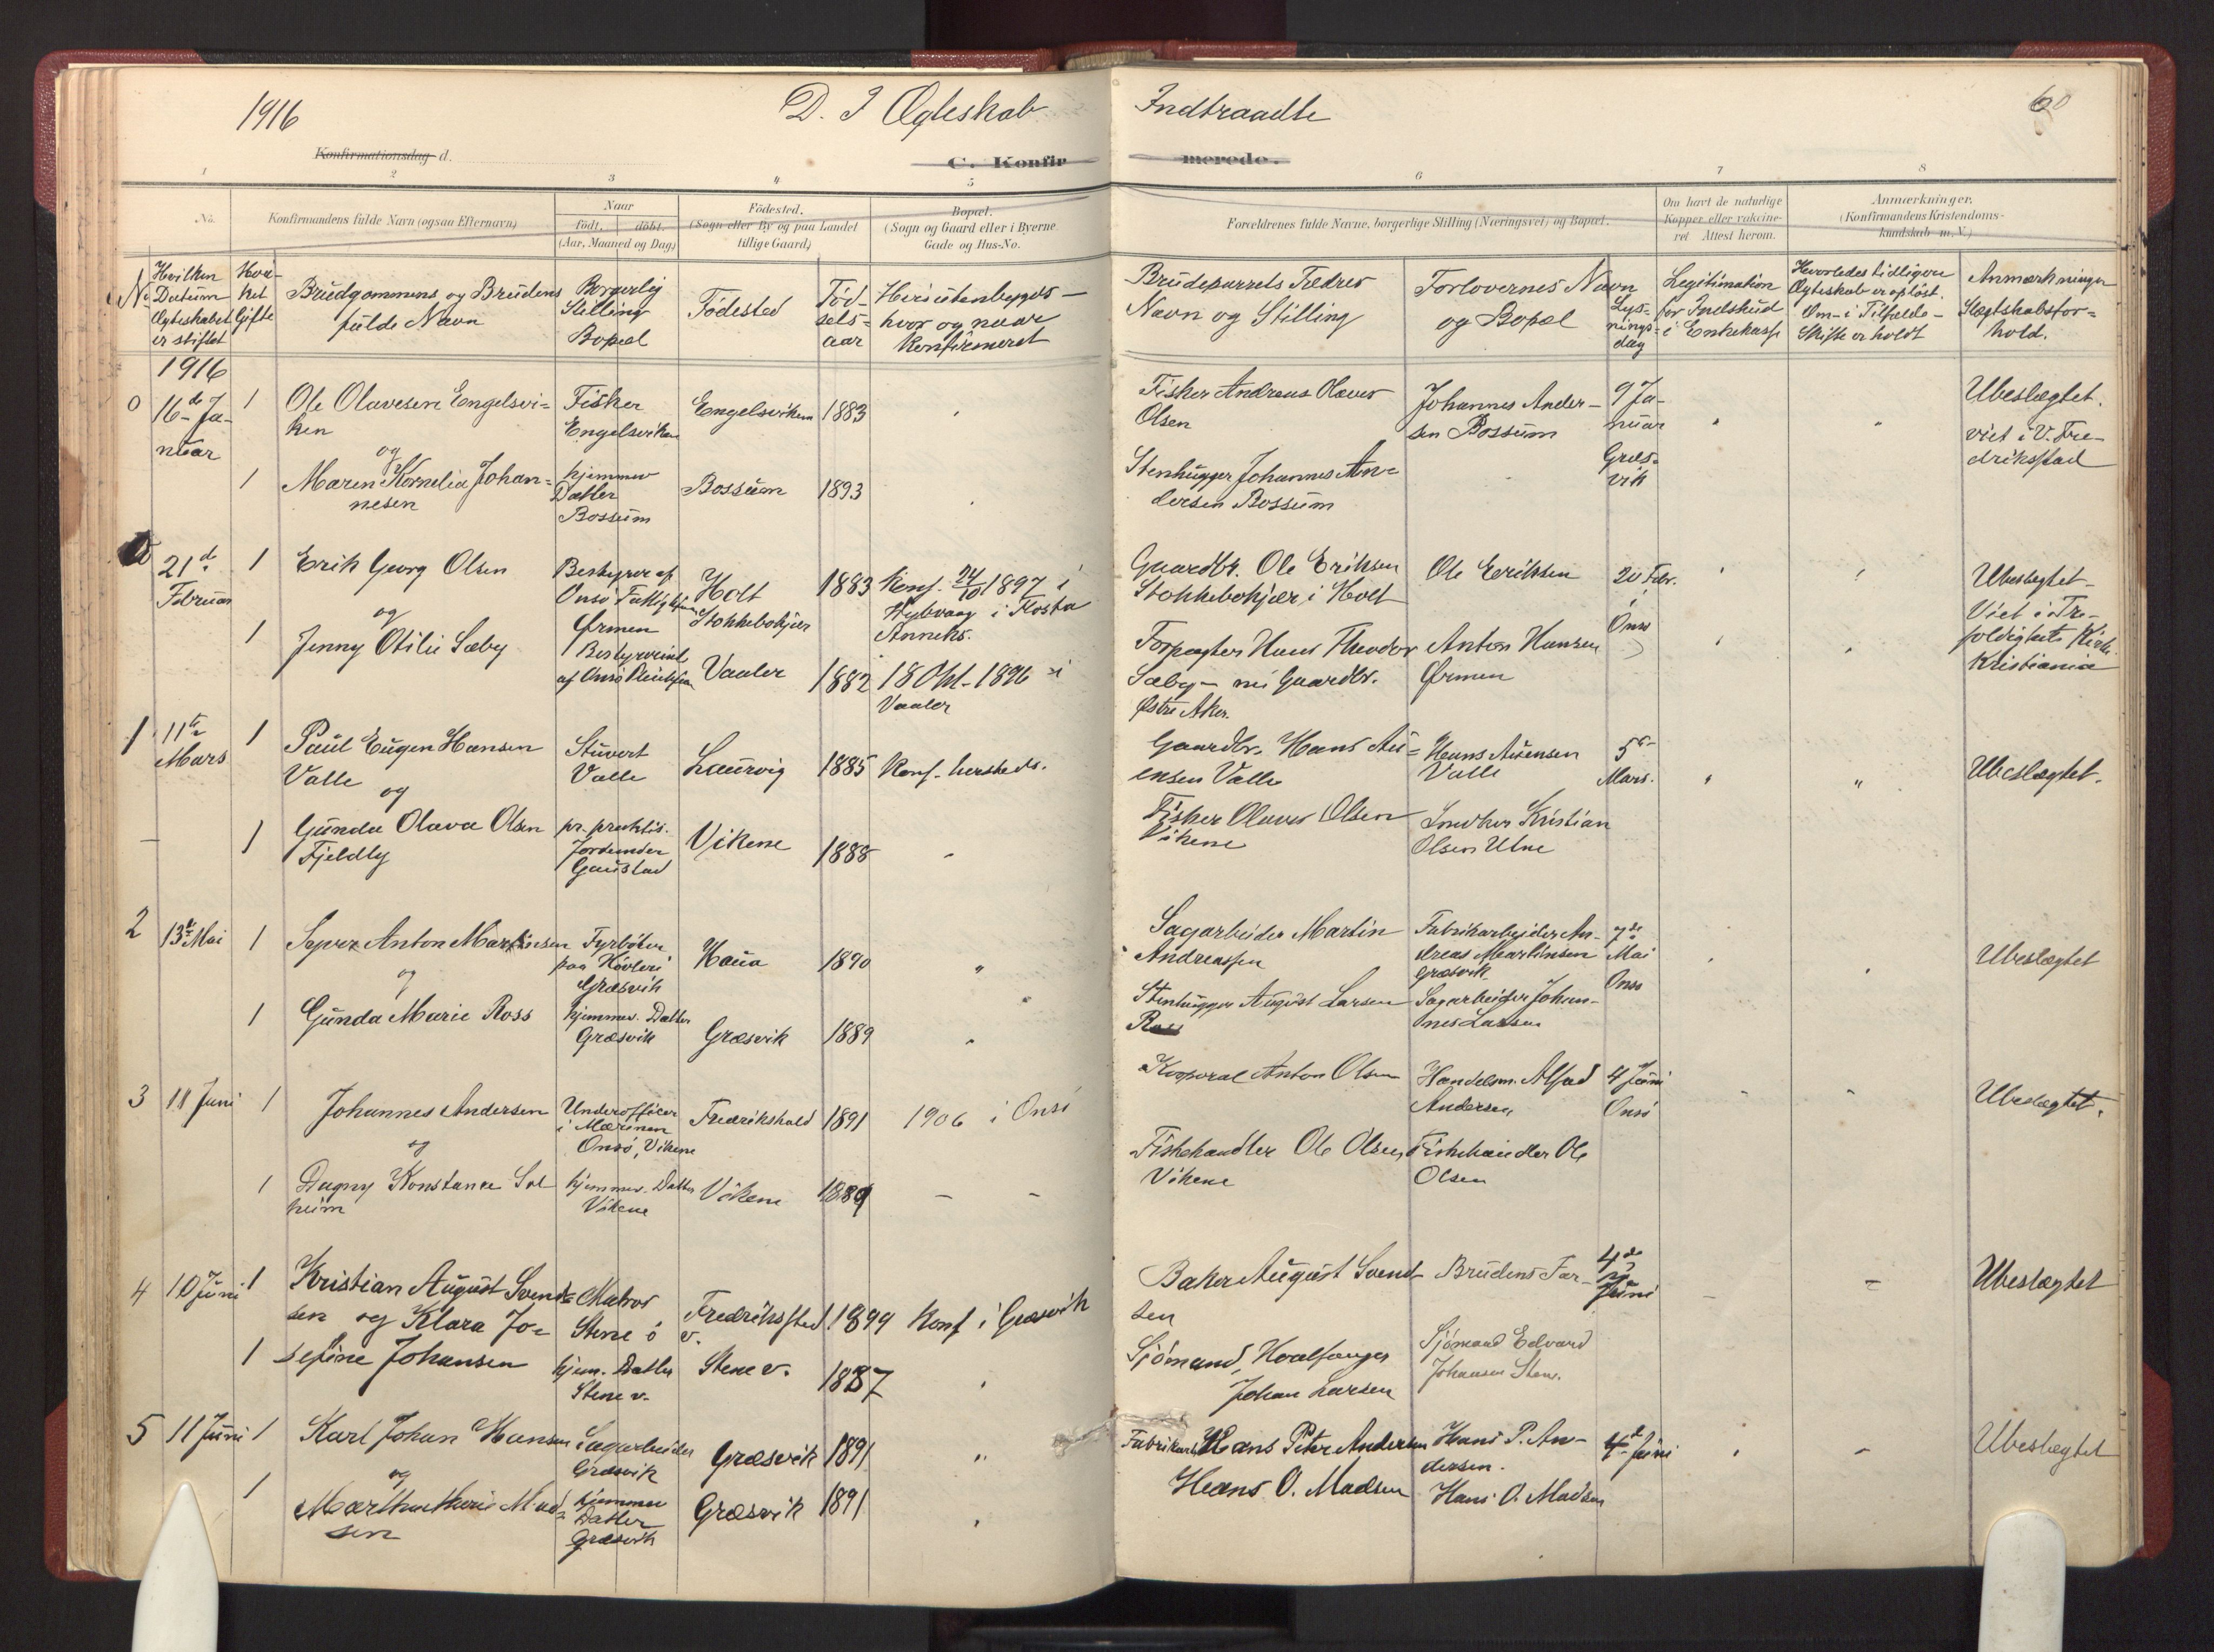 1916
D. I Ægteskab Indtraadte
60
Konfirmationsdag d.
C. Konfirmerede.
1 2 3 4 5 6 7 8
No.
Konfirmandens fulde Navn (ogsaa Efternavn)
Naar
födt, döbt.
(Aar, Maaned og Dag)
Födested.
(Sogn eller By og paa Landet
tillige Gaard)
Bopæl.
(Sogn og Gaard eller i Byerne
Gade og Hus-No.
Forældrenes fulde Navne, borgerlige Stilling (Næringsvei) og Bopæl.
Om havt de naturlige
Kopper eller vaccine-
ret Attest herom.
Anmærkninger.
(Konfirmandens Kristendoms-
kundskab m. V.)
No
Hvilken
Datum
Ægteskabet
er stiftet
Hvor-
ket
Gifte
Brudgommens og Brudens
fulde Navn
Borgerlig
Stilling
Bopæl
Födested
Föd-
sels-
aar
Hvis utenbygds -
hvor og naar
Konfirmeret
Brudeparrets Fædres
Navn og Stilling
Forlovernes Navn
og Bopæl
Lys-
nings-
dag
Legitimation
for Indskud
i Enkekasse
Hvorledes tidligere
Ægteskab er oplöst.
Om - i Tilfælde -
Skifte er holdt
Anmærkninger
Slegtskabsfor-
hold.
1916
0
16de Ja-
nuar
1
Ole Olavesen Engelsvi-
ken
og
Fisker
Engelsviken
Engelsviken
1883
Fisker Andreas Olaves
Olsen
Johannes Ander-
sen Bossum
9 Ja-
nuar
Græs-
vik
Ubeslægtet.
viet i V. Fre-
drikstad
1
Maren Kornelia Johan-
nesen
hjemmev
Datter
Bossum
Bossum
1893
Stenhugger Johannes An-
dersen Bossum
21de
Februar
1
Erik Georg Olsen
og
Bestyrer af
Onsö
Ørmen
Holt
Stokkebokjær
1883
Konf. 24/10 1897 i
i Flosta
Anneks.
Gaardbr. Ole Eriksen
Stokkebokjær i Holt
Ole Eriksen
20 Febr.
i
Onsö
Ubeslegtet
Viet i Tre-
foldigheds Kirke
Kristiania
1
Jenny Otilie Sæby
Bestyrerinde
af Onsö
Vaaler
1882
18 Okt. 1896 i
Vaaler
Forpagter Hans Theodor
Sæby - nu Gaardbr.
Østre Aker.
Anton Hansen
Ørmen
1
11te
Mars
1
Paul Eugen Hansen
Valle
og
Stuert
Valle
Laurvig
1885
Konf. hersteds.
Gaardbr. Hans Au-
ensen Valle
Hans Auensen
Valle
5te
Mars.
Ubeslægtet.
1
Gunda Olava Olsen
Fjeldly
pr. praktis.
Jordemoder
Gaustad
Vikene
1888
Fisker Olaves Olsen
Vikene
Snedker Kristian
Olsen Utne
2
13de Mai
1
Syver Anton Martinsen
og
Fyrböter
paa Hövleri
Græsvik
Haua
1890
Sagarbeider Martin
Andreassen
Fabrikarbeider An-
dreas Martinsen
Græsvik
7de
Mai
Onsö
Ubeslegtet
1
Gunda Marie Ross
hjemmev. Datter
Græsvik
Græsvik
1889
Stenhugger August Larsen
Ross
Sagarbeider Johan-
nes Larsen
3
11 Juni
1
Johannes Andersen
og
Underofficer
i Marinen
Onsö, Vikene
Fredrikshald
1891
1906 i Onsö
Korporal Anton Olsen
Handelsm. Alfred
Andersen
4 Juni
Onsö
Ubeslægtet.
1
Dagny Konstance Sol
heim
hjemmev. Datter
Vikene
Vikene
1889
Fiskehandler Ole Olsen
Vikene
Fiskehandler Ole
Olsen
4
10 Juni
1
Kristian August Svend-
sen og Klara Jo-
Matros
Stene ö
Fredriksstad
v.
1899
Konf i Græsvik
Baker August Svend-
sen
Brudens Far
4de
Juni
Ubeslægtet
1
sefine Johansen
hjem. Datter
Stene v.
Stene v.
1887
Sjömand, Hvalfanger
Johan Larsen
Sjömand Edvard
Johansen Stene.
5
11 Juni
1
Karl Johan Hansen
og
Sagarbeider
Græsvik
Græsvik
1891
Fabrikarb. Hans Peter Andersen
Hans P. An-
dersen.
4de Juni
Ubeslegtet
1
Martha Marie Mad-
sen
hjemmev
Datter
Græsvik
Græsvik
1891
Hans O. Madsen
Hans O. Madsen